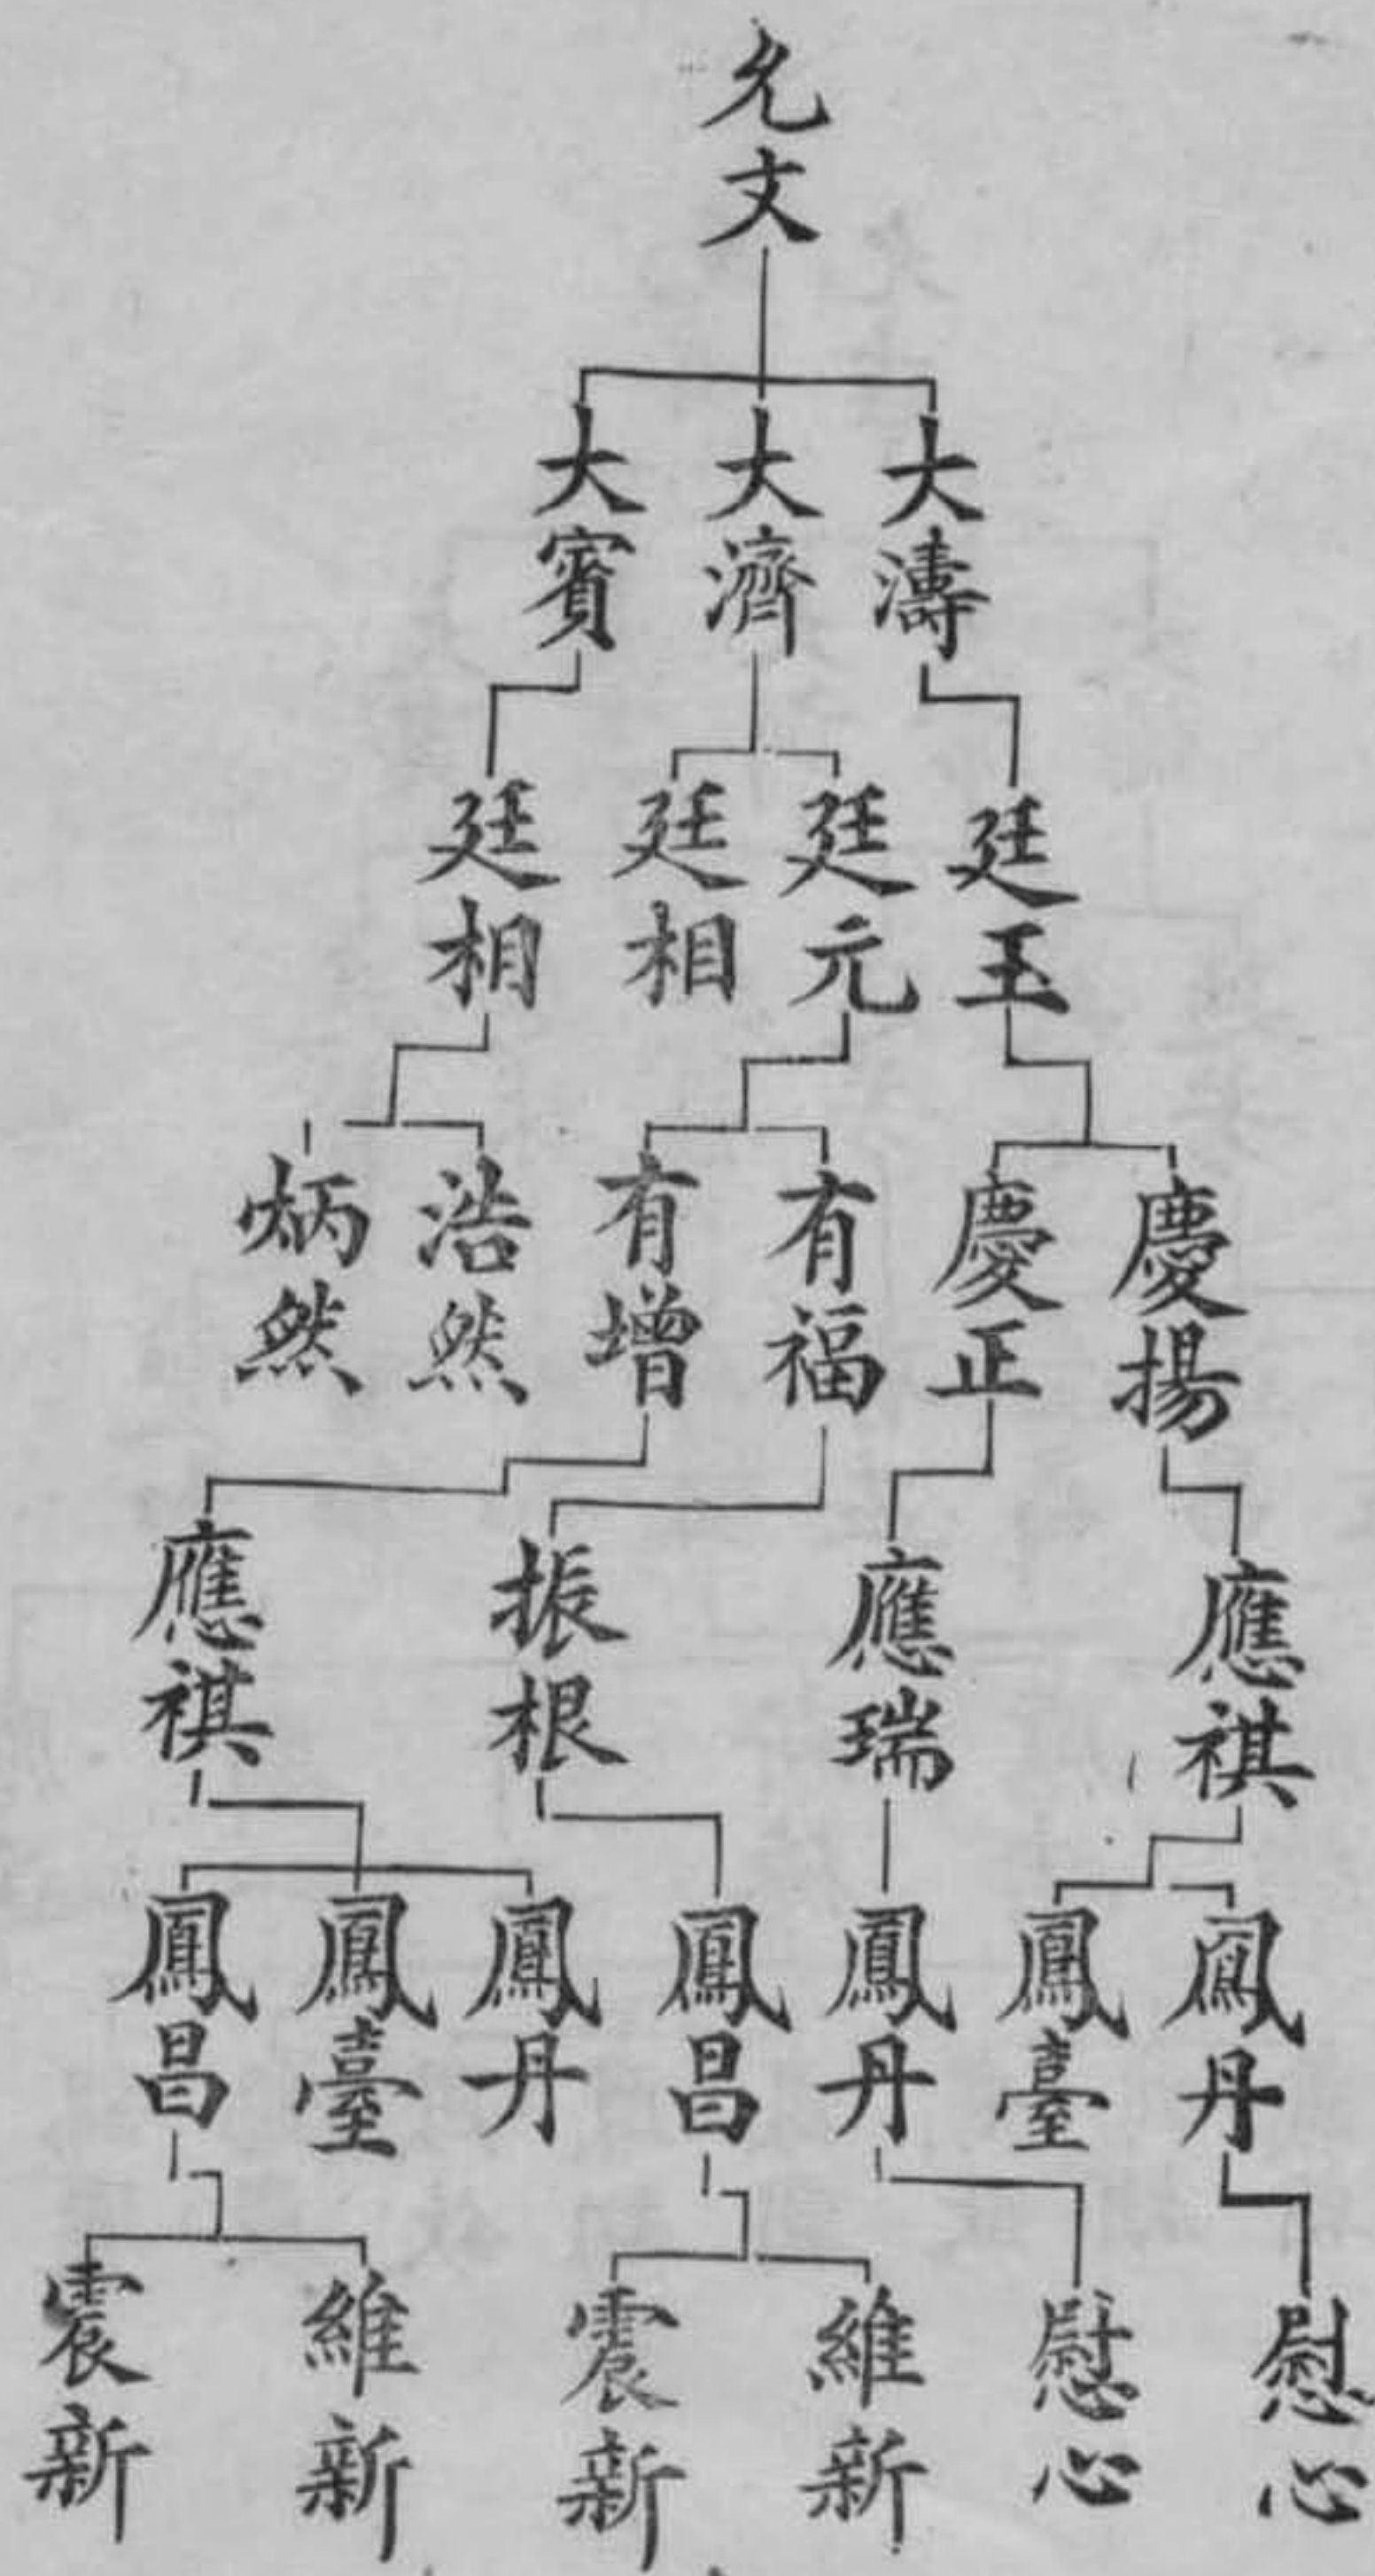 允文
大濤
大濟
大賓
廷玉
廷元
廷相
廷相
慶揚
慶正
有福
有增
浩然
炳然
應祺
應瑞
振根
應祺
鳳丹
鳳臺
鳳丹
鳳昌
鳳丹
鳳臺
鳳昌
慰心
慰心
維新
震新
維新
震新